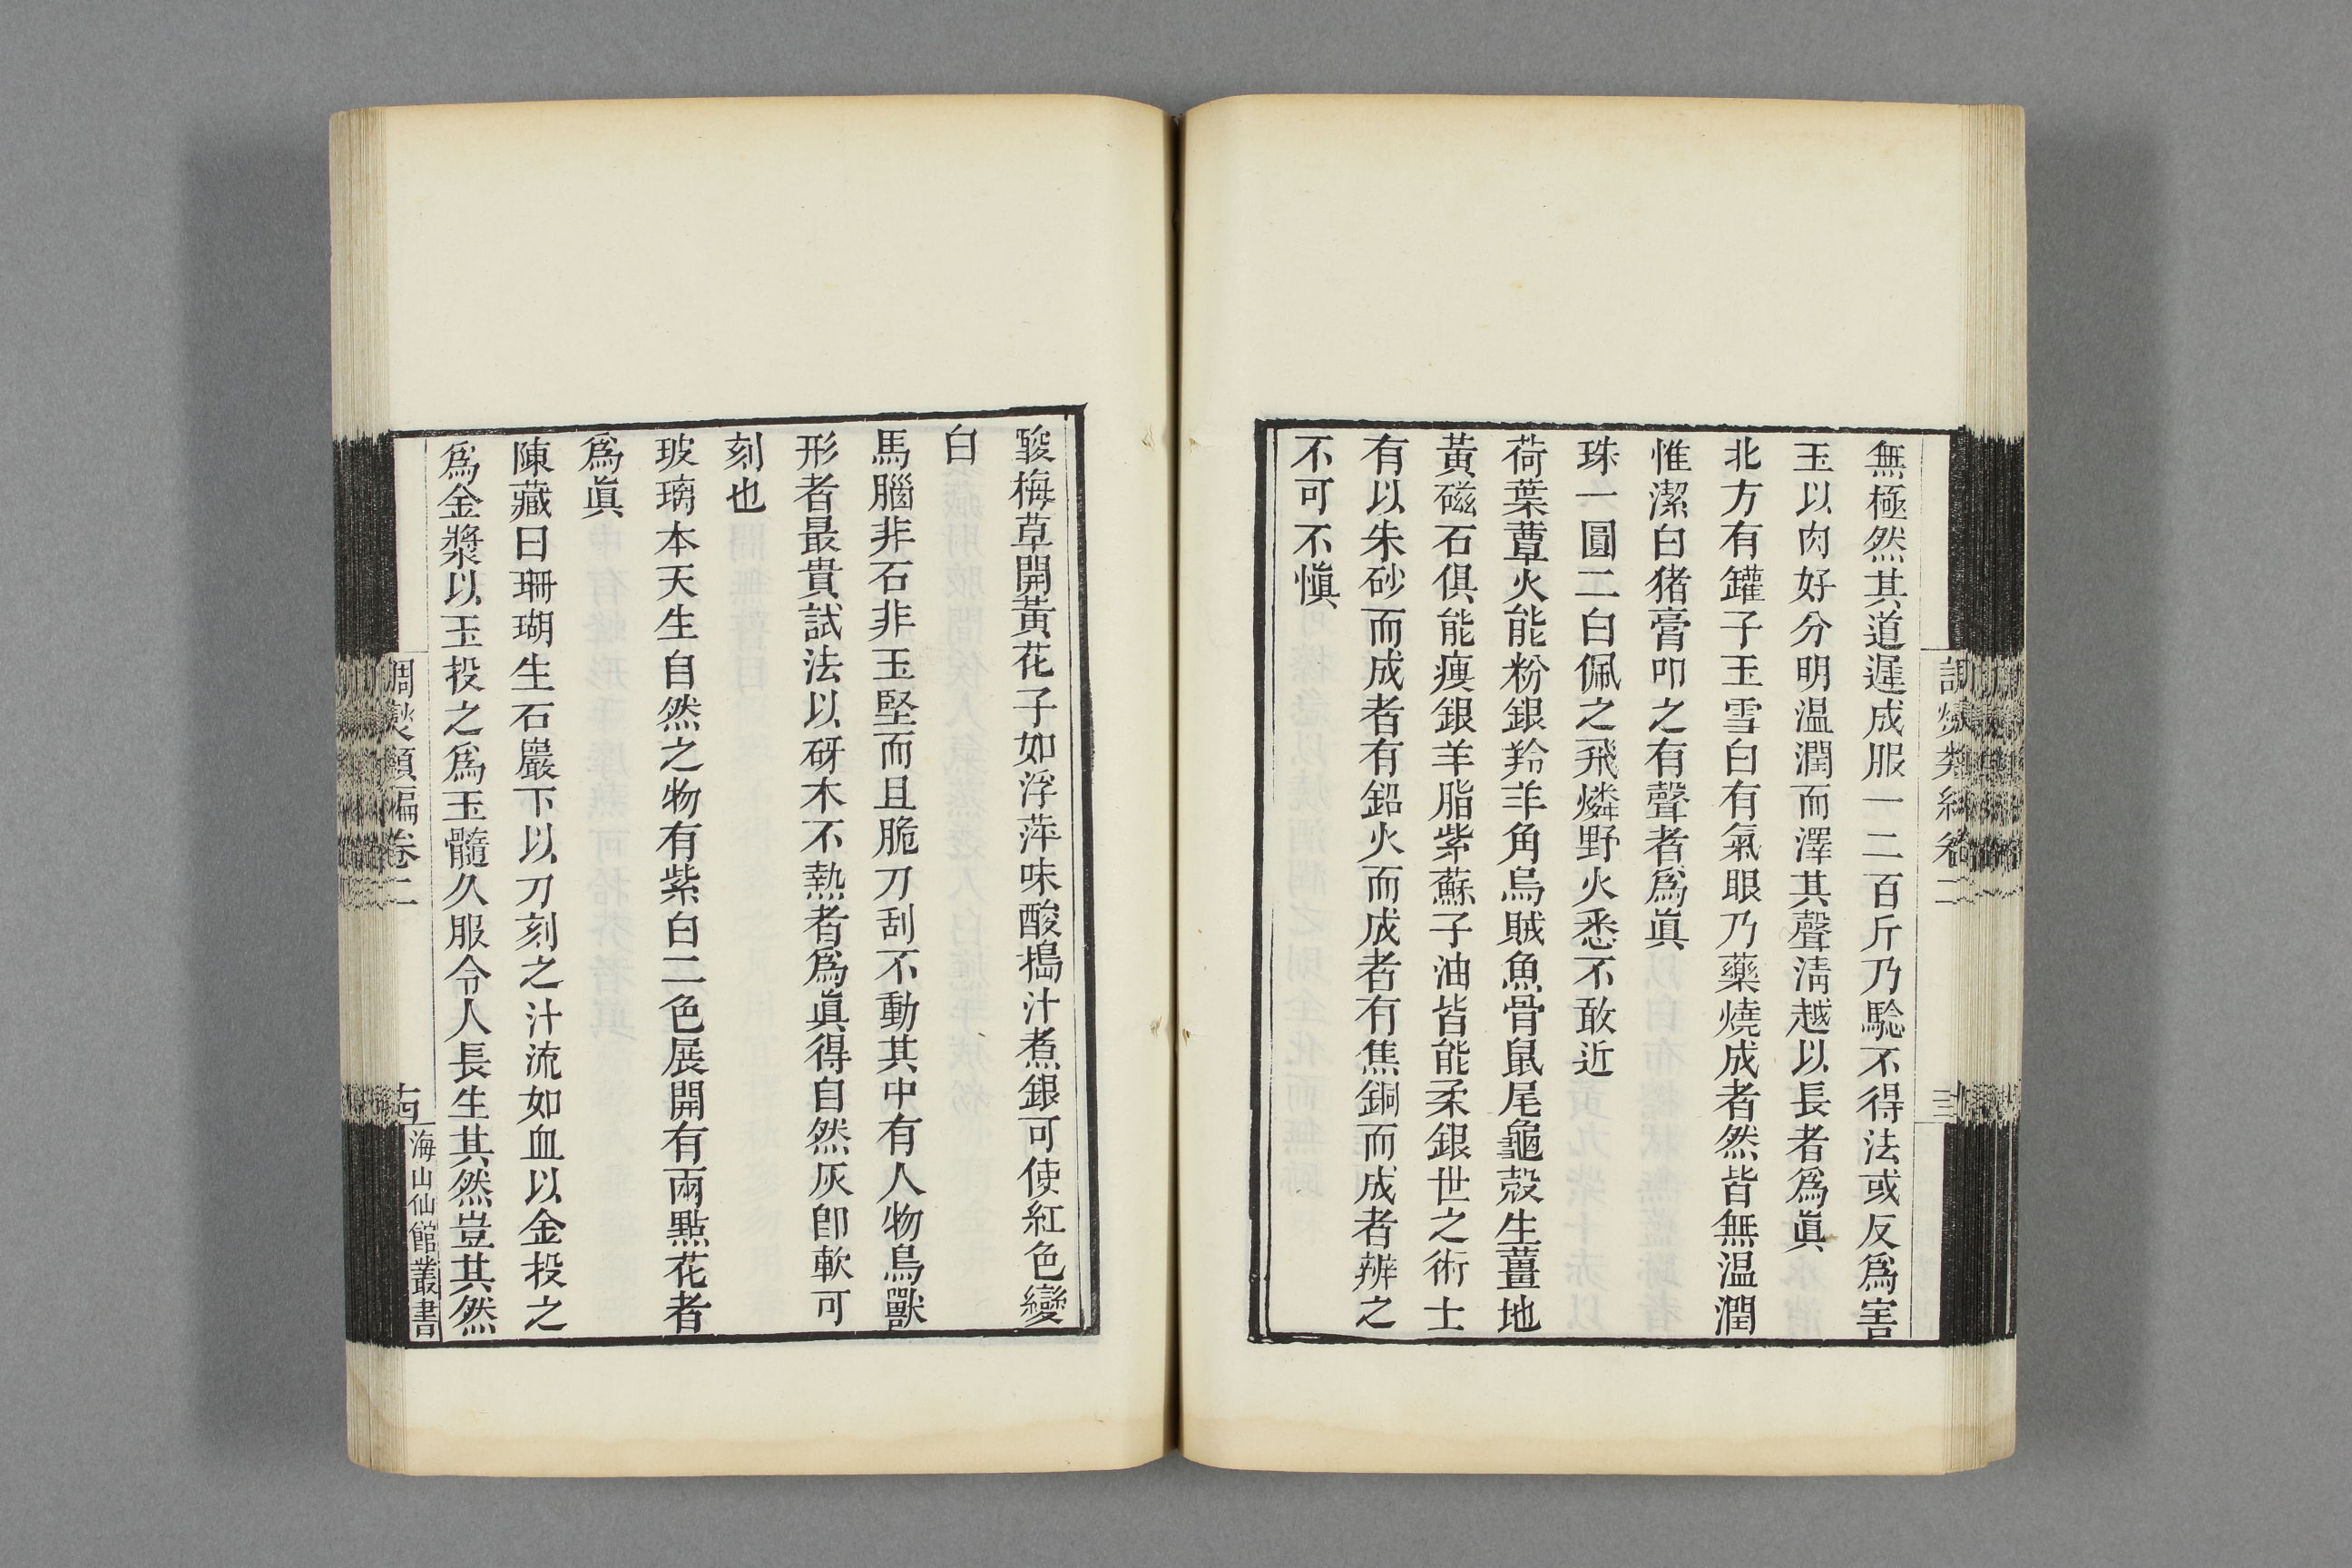 無極然其道遲成服一二百斤乃騐不得法或反爲害
玉以肉好分明温潤而澤其聲清越以長者爲眞
北方有罐子玉雪白有氣眼乃藥燒成者然皆無温潤
惟潔白猪膏叩之有聲者爲眞
珠一圓二白佩之飛燐野火悉不敢近
荷葉蕈火能粉銀羚羊角烏賊魚骨鼠尾龜殼生薑地
黃磁石俱能瘦銀羊脂紫蘇子油皆能柔銀世之術士
有以朱砂而成者有鉛火而成者有焦銅而成者辨之
不可不愼
酸梅草開黃花子如浮萍味酸搗汁煮銀可使紅色變
白
馬腦非石非玉堅而且脆刀刮不動其中有人物鳥獸
形者最貴試法以砑木不熱者爲眞得自然灰卽軟可
刻也
玻瓈本天生自然之物有紫白二色展開有兩點花者
爲眞
陳藏曰珊瑚生石巖下以刀刻之汁流如血以金投之
爲金漿以玉投之爲玉髓久服令人長生其然豈其然
調燮類編卷二
古
海山仙館叢書